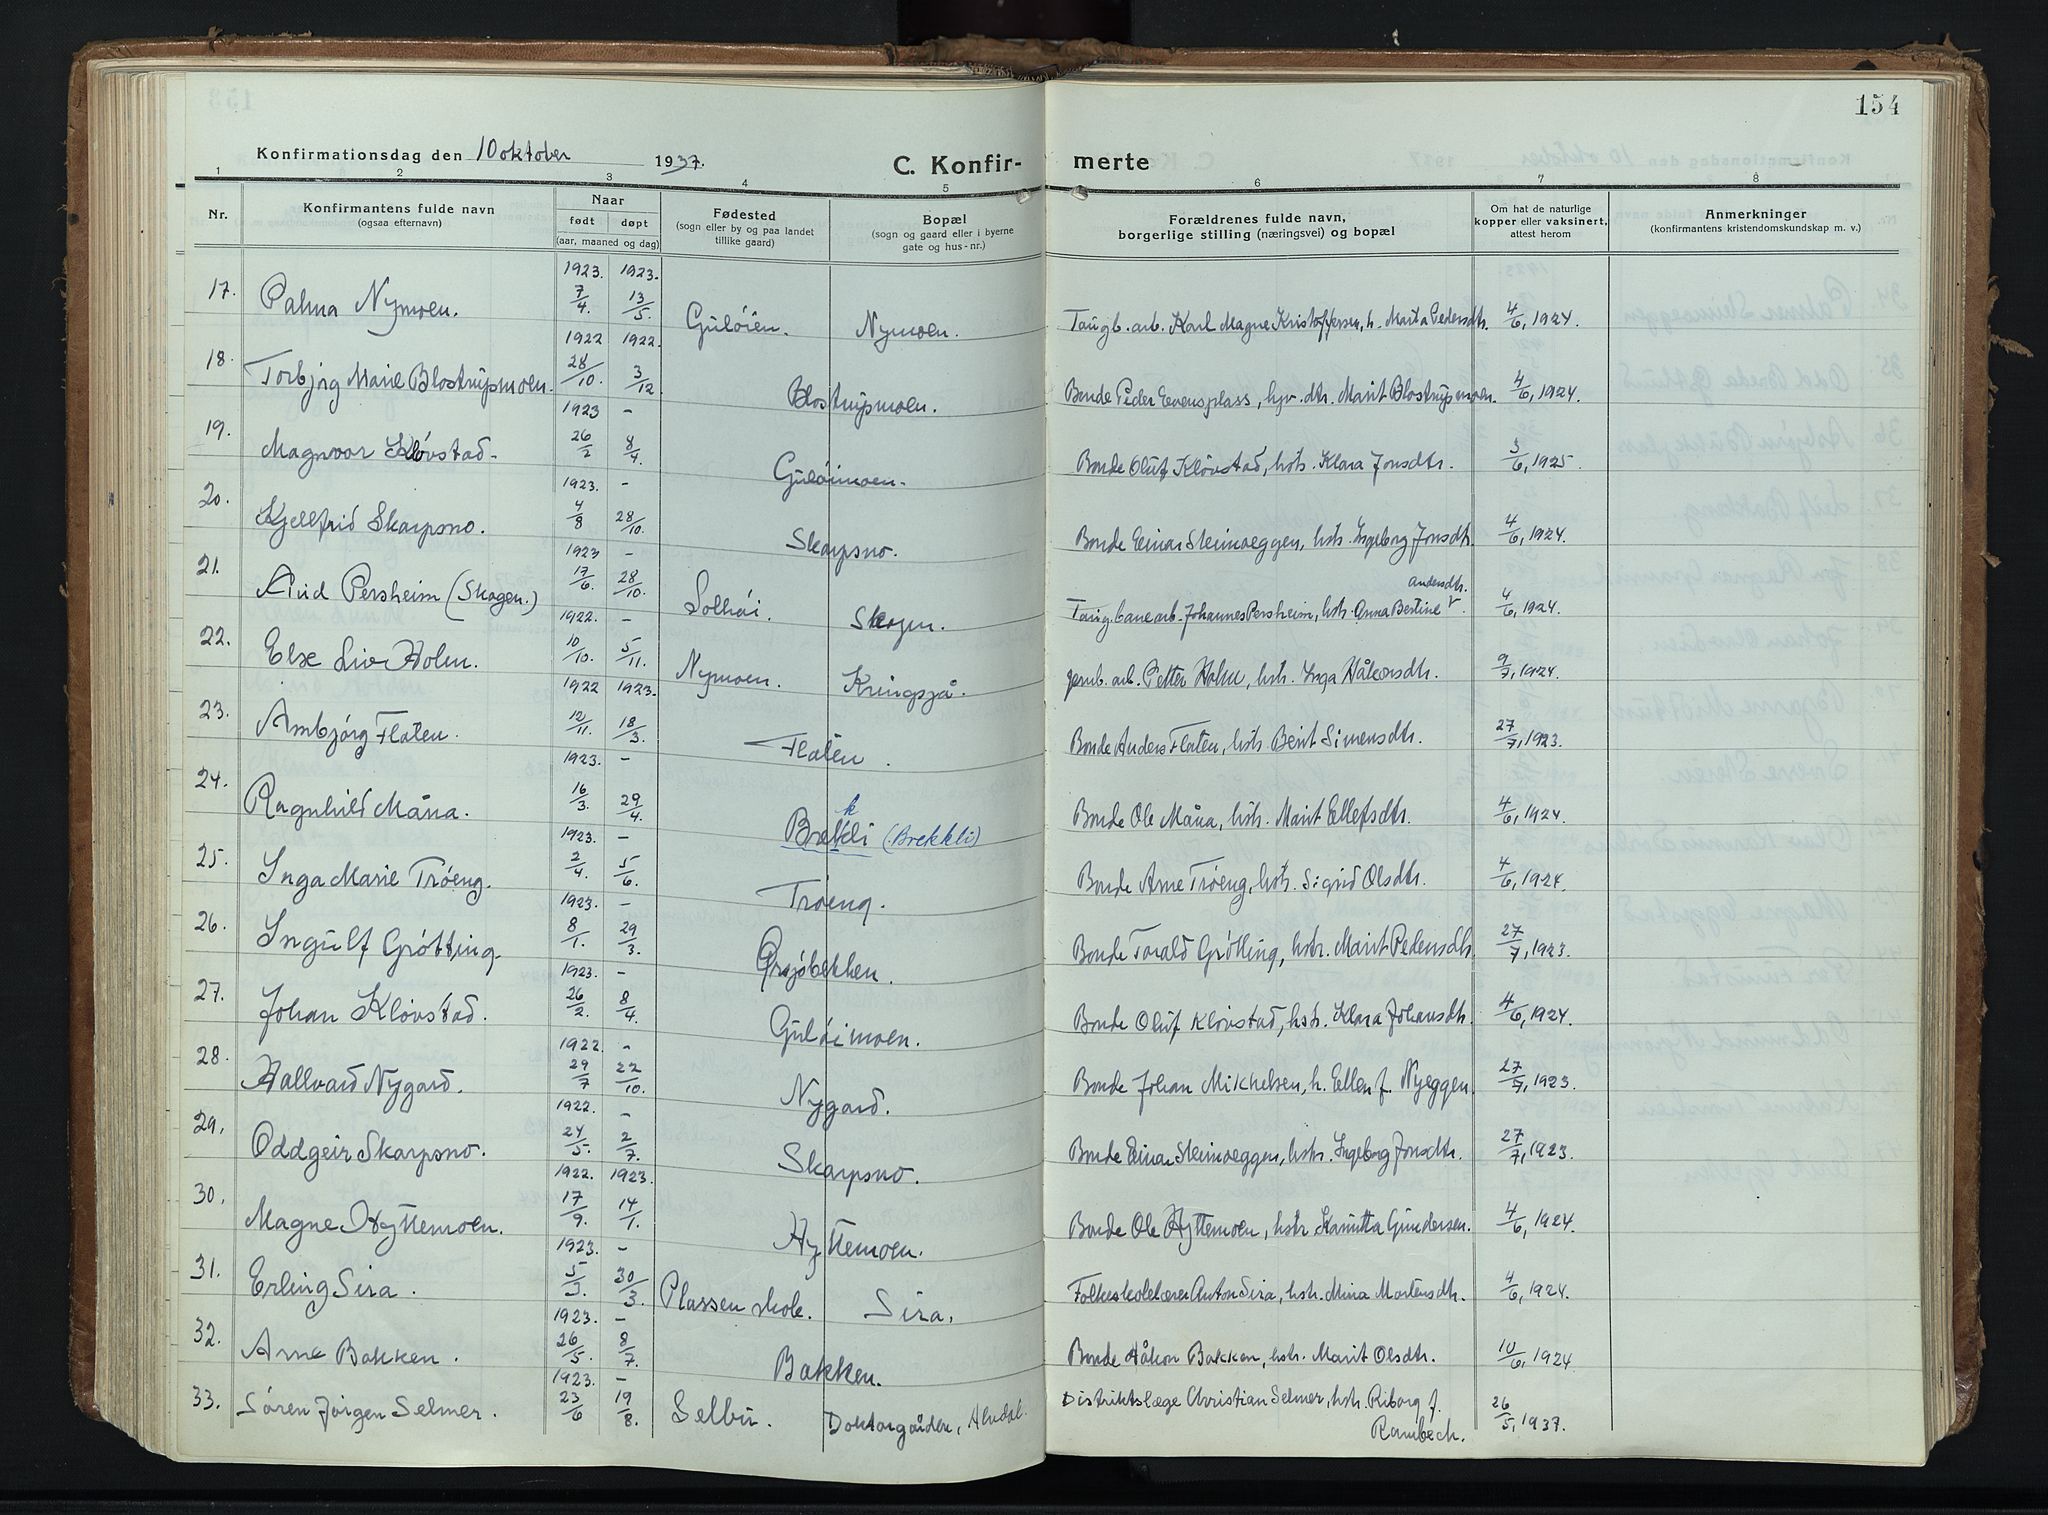 154
Konfirmationsdag den 10 oktober 1937.
C. Konfirmerte
1 2 3 4 5 6 7 8
Nr.
Konfirmantens fulde navn
(ogsaa efternavn)
Naar
født døpt
(aar, maaned og dag)
Fødested
(sogn eller by og paa landet
tillike gaard)
Bopæl
(sogn og gaard eller i byerne
gate og hus-nr.)
Forældrenes fulde navn,
borgerlige stilling (næringsvei) og bopæl
Om hat de naturlige
kopper eller vaksinert,
attest herom
Anmerkninger
(konfirmantens kristendomskundskap m. v.)
1923. 1923.
17. Palma Nymoen. 7/4. 13/5. Gulöien. Nymoen. Karl Magne Kristoffersen, h. Marta Pedersdtr. 4/6, 1924.
1922 1922.
18. Torbjörg Marie Blostrupmoen. 28/10. 3/12. Blostrupmoen. Bonde Peder Evensplass, hjv. dtr. Marit Blostrupmoen. 4/6, 1924.
1923 -
19. Magnvar Klövstad. 26/2 8/4. Gulöimoen. Bonde Oluf Klövstad, hstr. Klara Jonsdtr. 3/6, 1925.
1923. -
20. Kjellfrid Skarpsno. 4/8 28/10. Skarpsno. Bonde Einar Steimoeggen, hstr. Ingeborg Jonsdtr. 4/6, 1924.
1923 -
21. Persheim (Skogen.) 17/6. 28/10. Solhöi. Skogen. Johannes Persheim, hstr. Anna Bertine Andersdtr. 4/6, 1924.
1922. -
22. Else Liv Holm. 10/10. 5/11. Nymoen. Kringsjå. jernb. arb. Petter Holm, hstr. Inga Håkonsdtr. 9/7, 1924.
1922 1923.
23. Ambjörg Flaten. 12/11. 18/3. Flaten. Bonde Anders Flaten, hstr. Berit Simensdtr. 27/7, 1923.
1923. -
24. Ragnhild Måna. 16/3. 29/4. Brekli k (Brekkli) Bonde Ole Måna, hstr. Marit Ellefsdtr. 4/6, 1924.
1923. -
25. Inga Marie Tröeng. 2/4. 5/6. Tröeng. Bonde Arne Tröeng, hstr. Sigrid Olsdtr. 4/6, 1924.
1923. -
26. Ingulf Grötting. 8/1. 29/3. Grsjöbekken. Bonde Torald Grötting, hstr. Marit Pedersdtr. 27/7, 1923.
1923. -
27. Johan Klövstad. 26/2. 8/4. Gulöimoen. Bonde Oluf Klövstad, hstr. Klara Johansdtr. 4/6, 1924.
1922. -
28. Hallvard Nygard. 29/7 22/10. Nygard. Bonde Johan Mikkelsen, h. Ellen f. Nyeggen. 27/7, 1923.
1922. -
29. Oddgeir Skarpsno. 24/5. 2/7. Skarpsno. Bonde Einar Steimoeggen, hstr. Ingeborg Jonsdtr. 27/7, 1923.
1922. 1923.
30. Magne Hyttemoen. 17/9. 14/1. Hyttemoen. Bonde Ole Hyttemoen, hstr. Kanutta Gundersen. 4/6, 1924.
1923. -
31. Erling Sira. 5/3. 30/3. Plassen skole. Sira. Folkeskolelærer Anton Sira, hstr. Mina Mortensdtr. 4/6, 1924.
1923. -
32. Arne Bakken. 26/5. 8/7. Bakken. Bonde Håkon Bakken, hstr. Marit Olsdtr. 10/6, 1924
1923. -
33. Sören Jörgen Selmer. 23/6 19/8. Selbu. Doktorgården, Alvdal. Distriktslæge Christian Selmer, hstr. Riborg f. Rambech. 26/5, 1937.